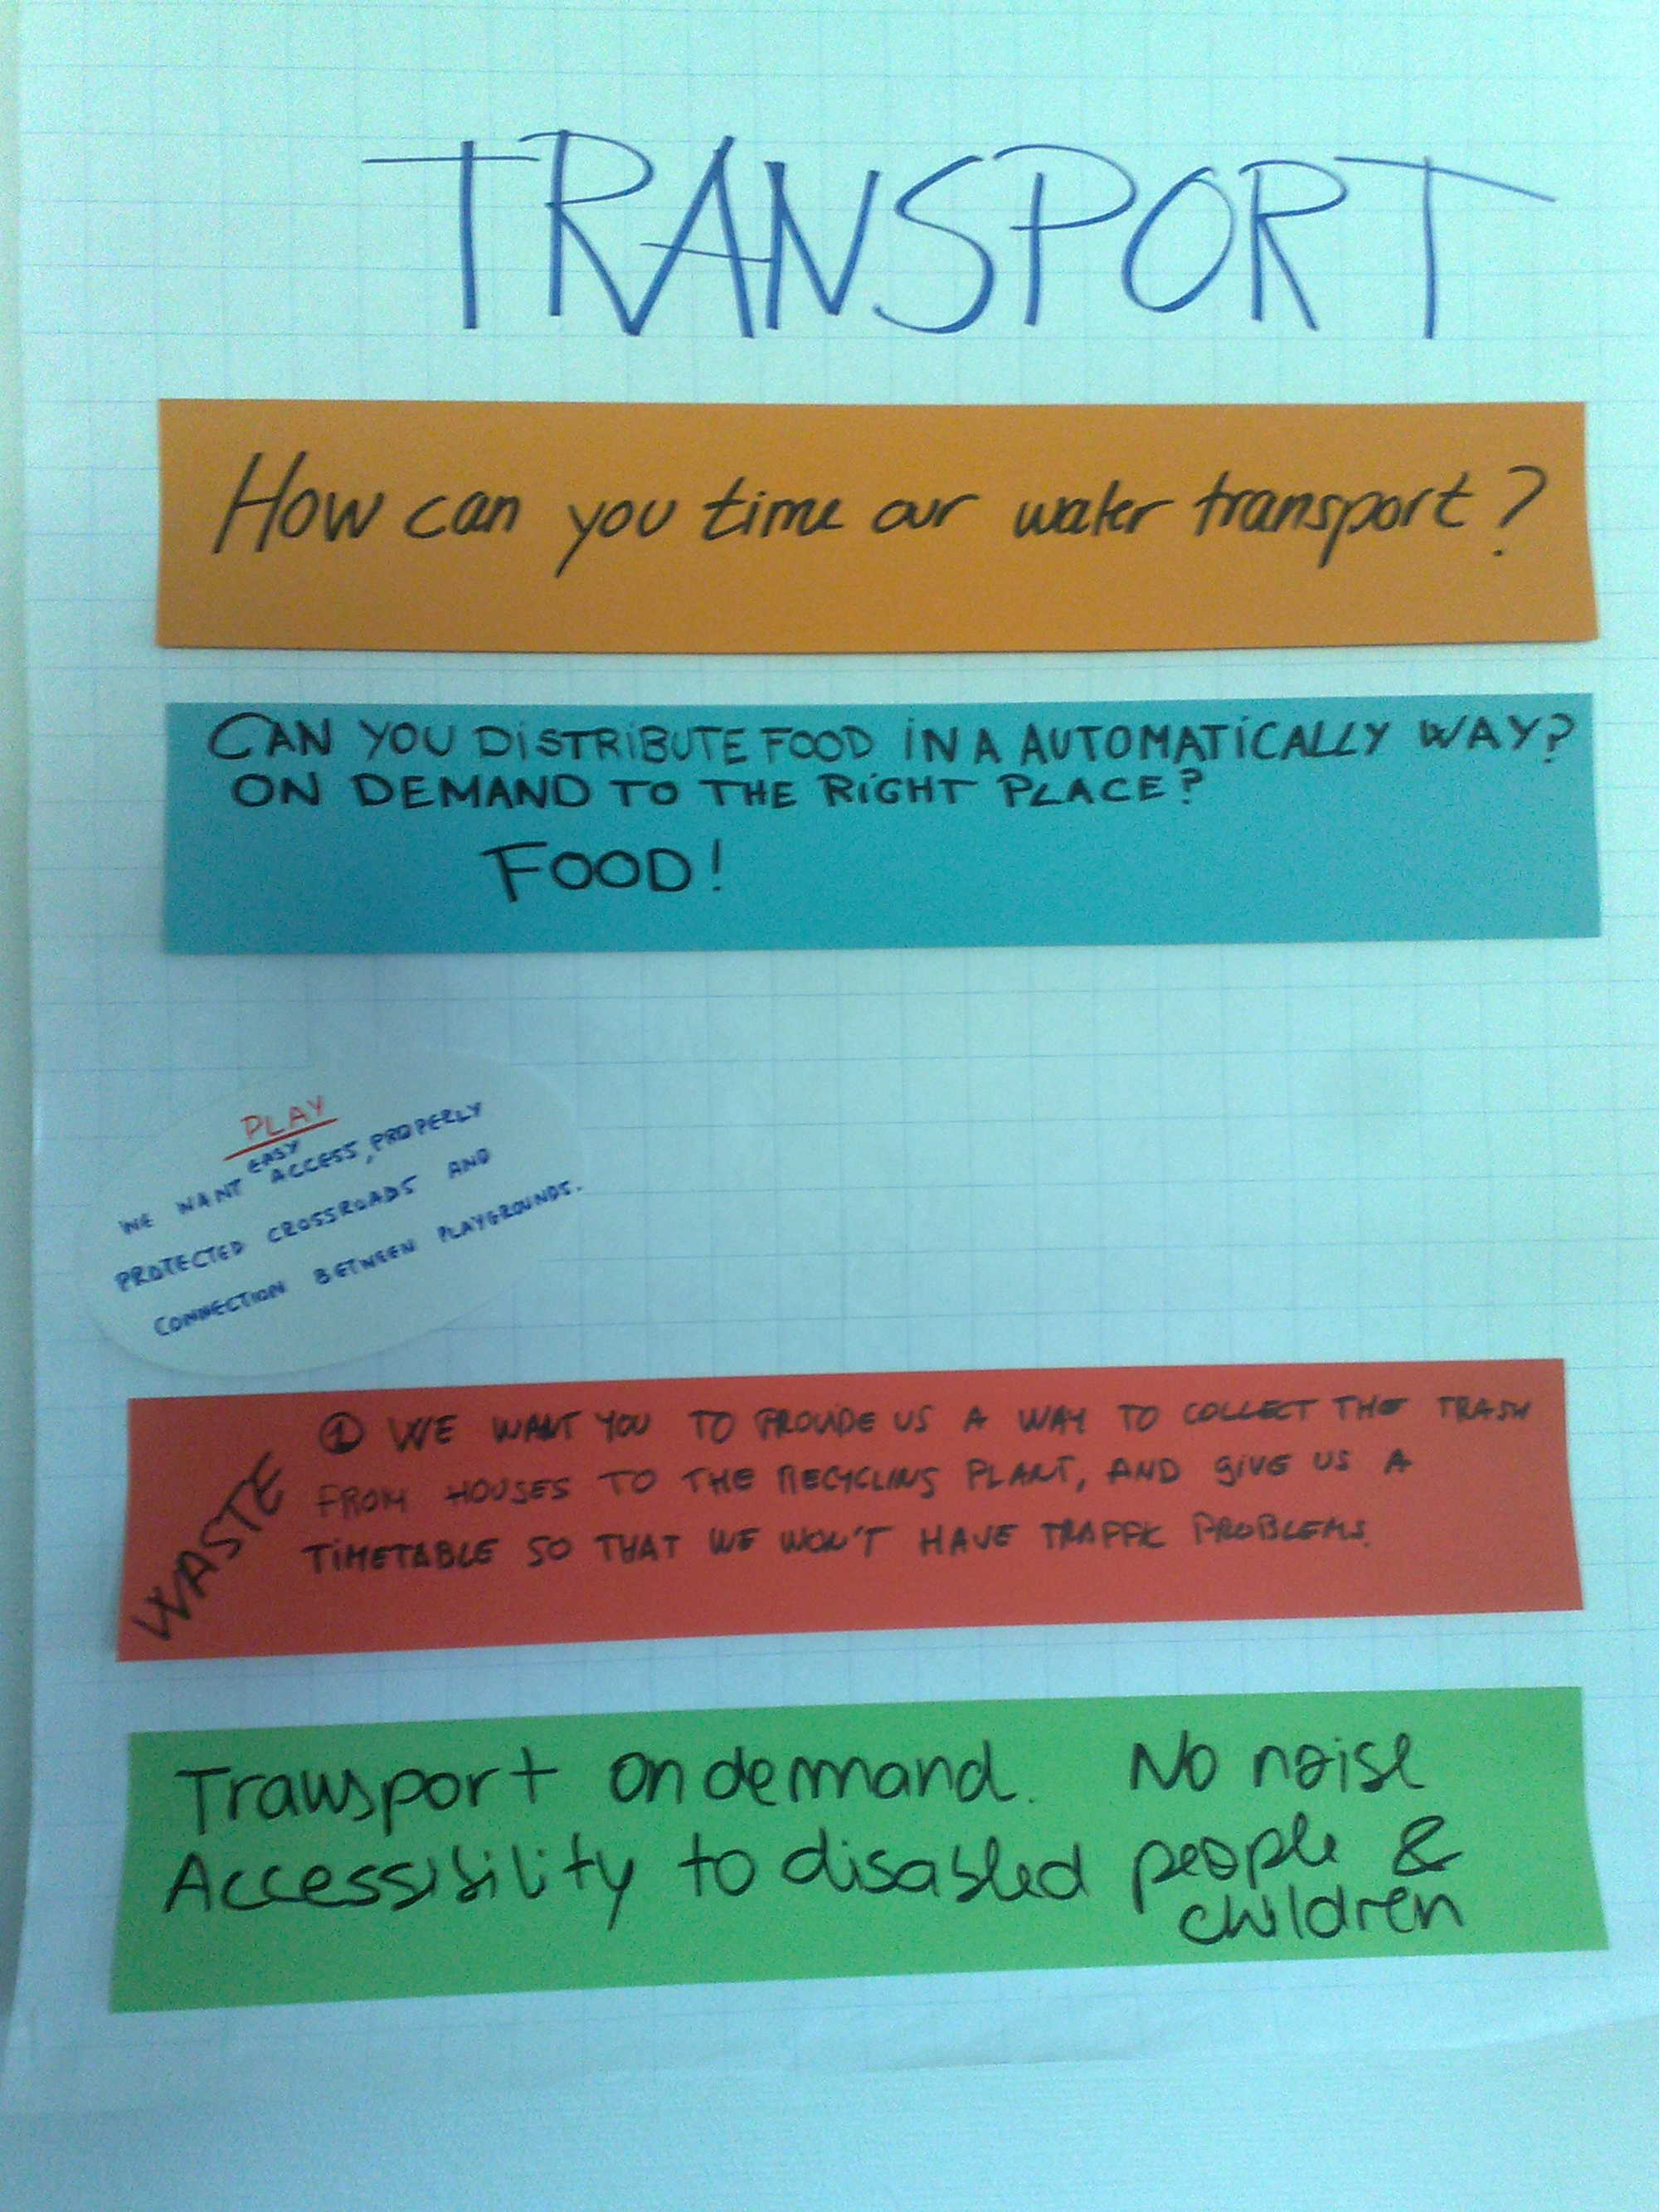 TRANSPORT
How can you time our water transport?
CAN YOU DISTRIBUTE FOOD IN A AUTOMATICALLY WAY?
ON DEMAND TO THE RIGHT PLACE?
FOOD!
PLAY
EASY
WE WANT ACCESS, PROPERLY
PROTECTED CROSSROADS AND
CONNECTION BETWEEN PLAYGROUNDS.
WASTE
① WE WANT YOU TO PROVIDE US A WAY TO COLLECT THE TRASH
FROM HOUSES TO THE RECYCLING PLANT, AND GIVE US A
TIMETABLE SO THAT WE WON'T HAVE TRAFFIC PROBLEMS.
Transport on demand. No noise
Accessibility to disabled people &
children